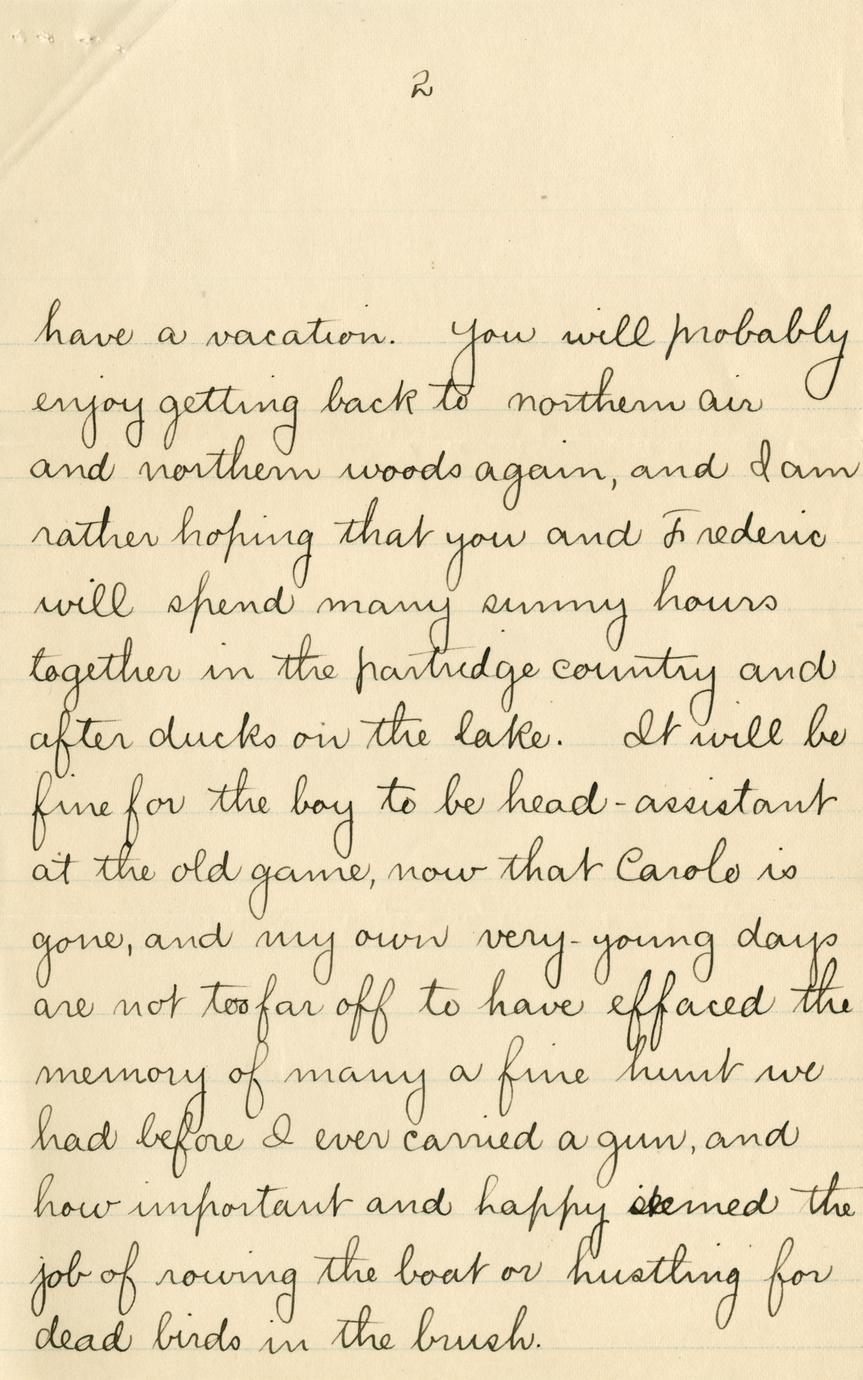 2
have a vacation. You will probably
enjoy getting back to northern air
and northern woods again, and I am
rather hoping that you and Frederic
will spend many sunny hours
together in the partridge country and
after ducks on the lake. It will be
fine for the boy to be head-assistant
at the old game, now that Carolo is
gone, and my own very-young days
are not too far off to have effaced the
memory of many a fine hunt we
had before I ever carried a gun, and
how important and happy seemed the
job of rowing the boat or hustling for
dead birds in the brush.